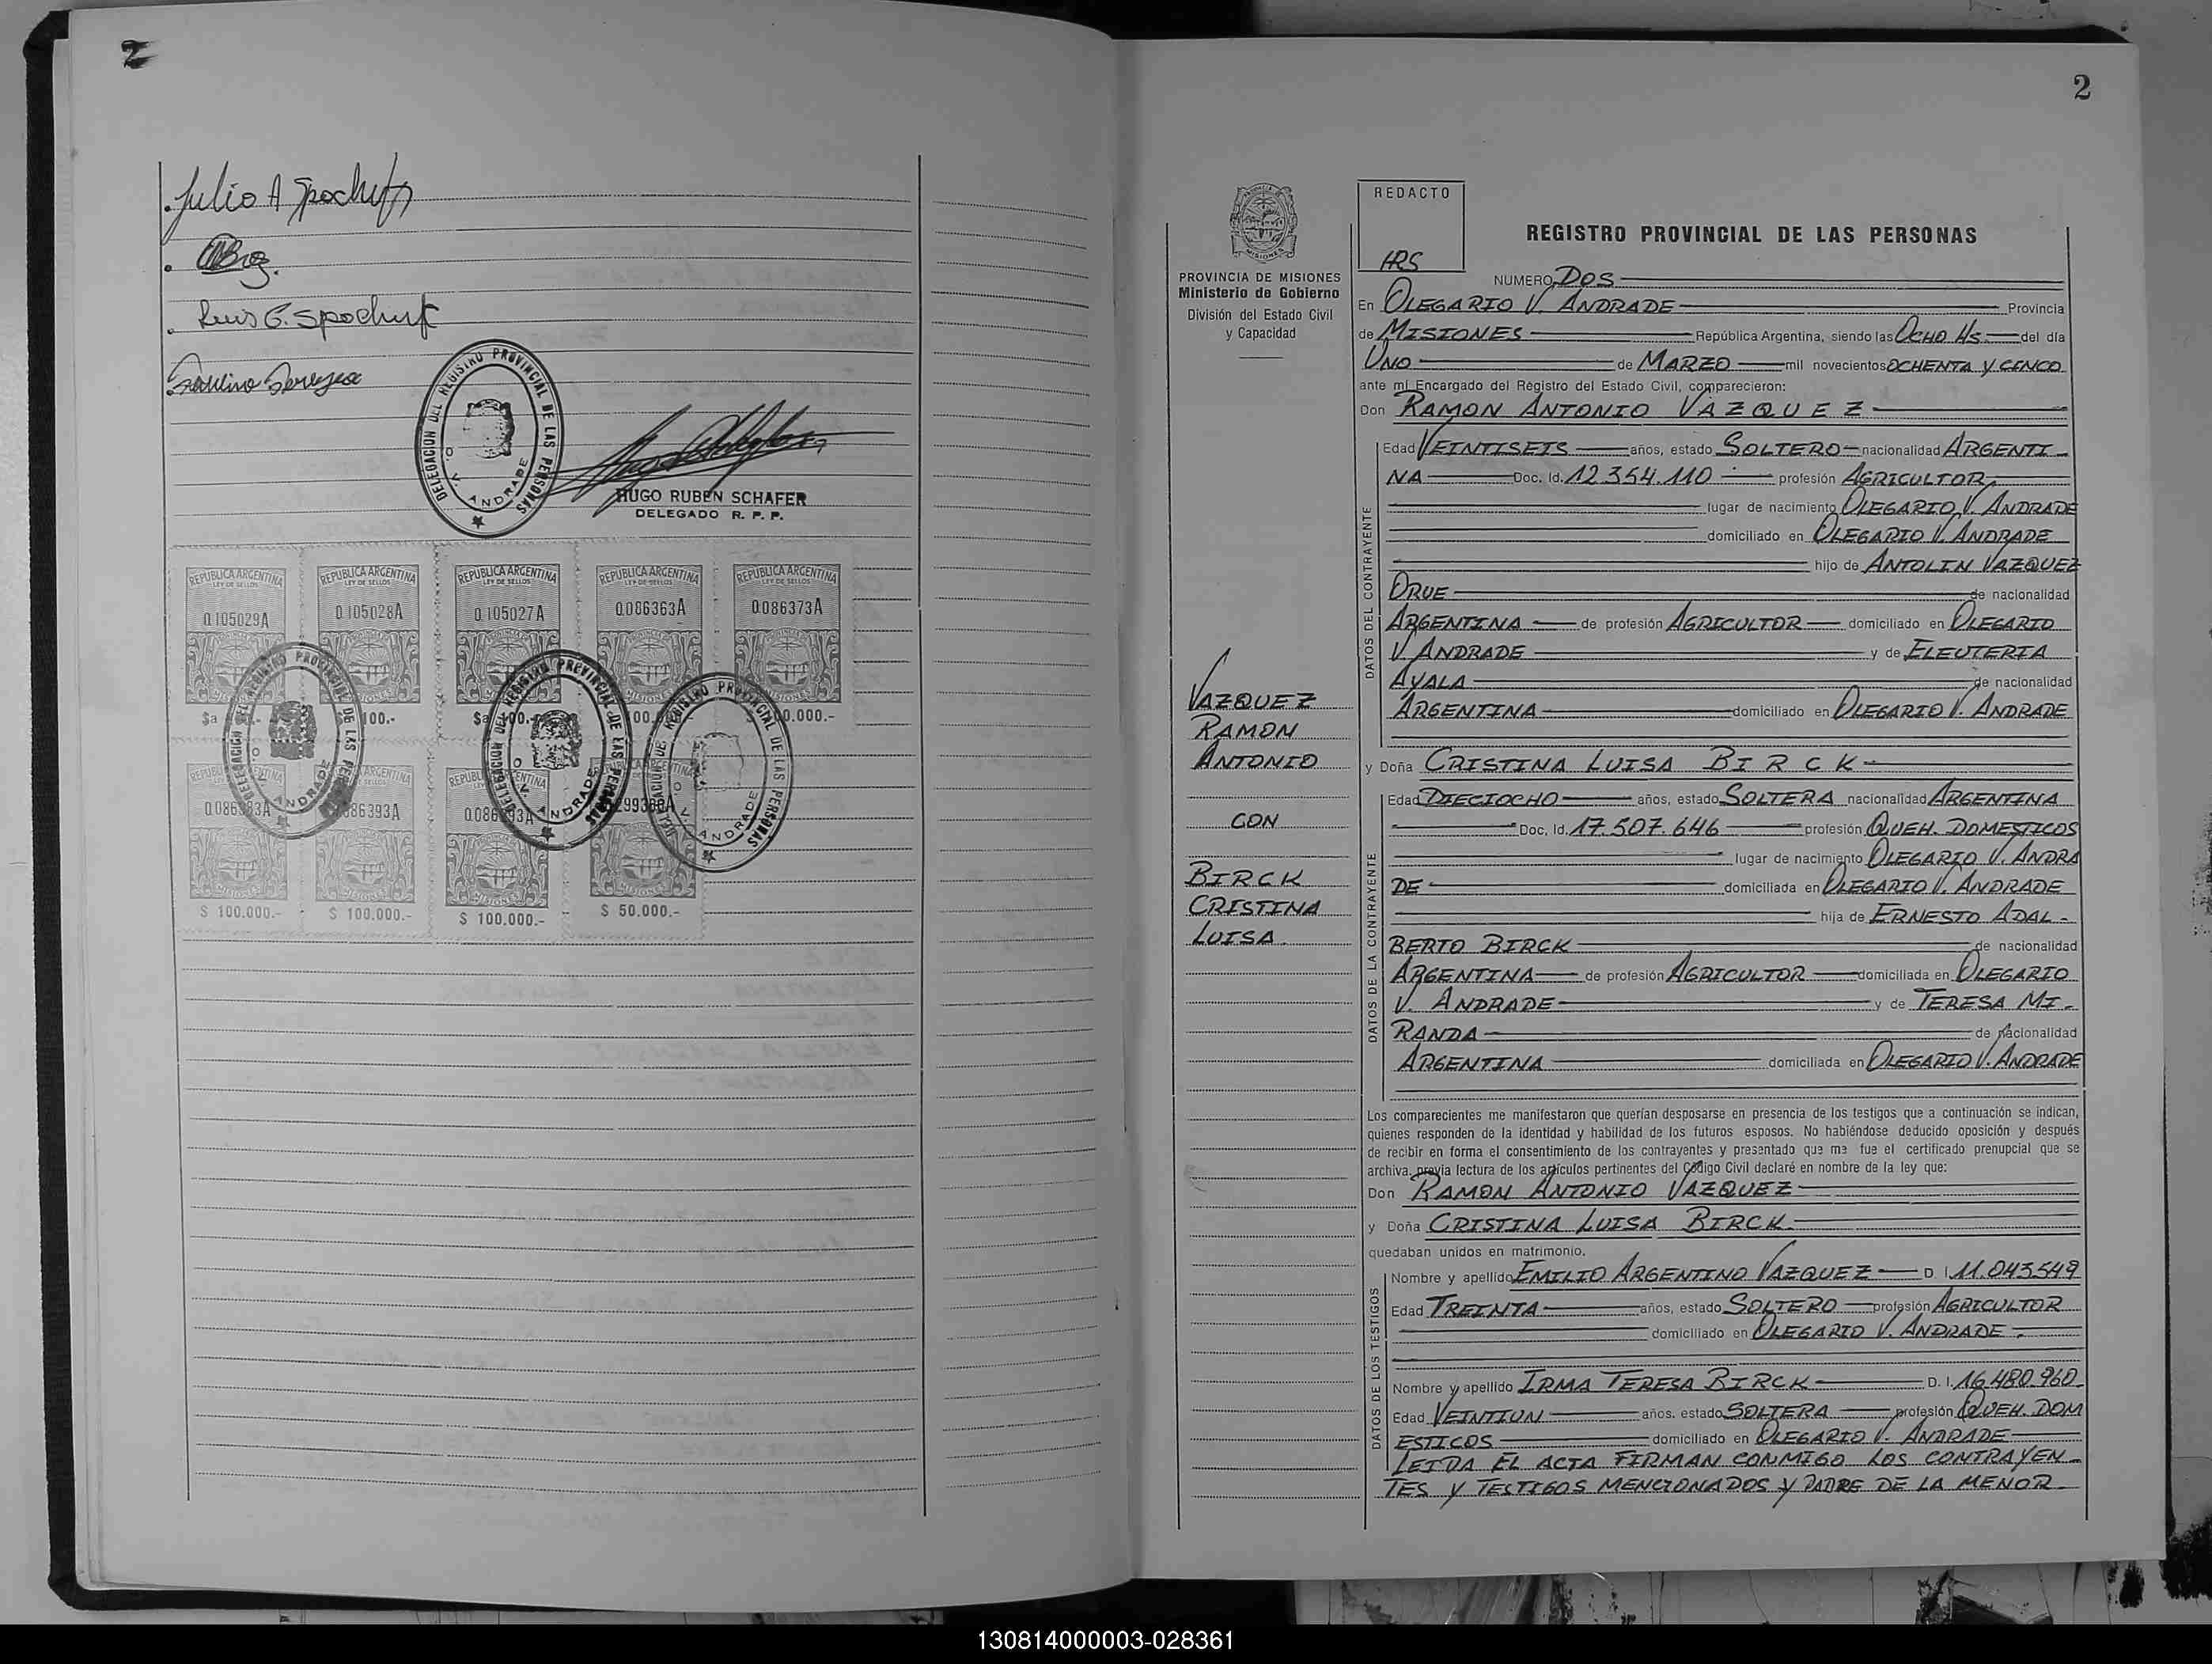 2
Julio A Spochuk
Luis G. Spochuk
DELEGACION DEL REGISTRO PROVINCIAL DE LAS PERSONAS
O. V. ANDRADE
HUGO RUBEN SCHAFER
DELEGADO R. P. P.
REPUBLICA ARGENTINA REPUBLICA ARGENTINA REPUBLICA ARGENTINA REPUBLICA ARGENTINA REPUBLICA ARGENTINA
LEY DE SELLOS LEY DE SELLOS LEY DE SELLOS LEY DE SELLOS LEY DE SELLOS
0105029A 0105028A 0105027A 0086363A 0086373A
MISIONES
$a 100.- $a 100.-
DELEGACION DEL REGISTRO PROVINCIAL DE LAS PERSONAS
O. V. ANDRADE
DELEGACION DEL REGISTRO PROVINCIAL DE LAS PERSONAS
O. V. ANDRADE
DELEGACION DEL REGISTRO PROVINCIAL DE LAS PERSONAS
O. V. ANDRADE
0086383A 0086393A
MISIONES MISIONES MISIONES MISIONES
$ 100.000.- $ 100.000.- $ 100.000.- $ 50.000.-
2
PROVINCIA DE MISIONES
Ministerio de Gobierno
División del Estado Civil
y Capacidad
VAZQUEZ
RAMON
ANTONIO
CON
BIRCK
CRISTINA
LUISA
REDACTO
HRS
REGISTRO PROVINCIAL DE LAS PERSONAS
NUMERO DOS
En OLEGARIO V. ANDRADE Provincia
de MISIONES República Argentina, siendo las OCHO Hs. del día
UNO de MARZO mil novecientos OCHENTA Y CINCO
ante mí Encargado del Registro del Estado Civil, comparecieron:
Don RAMON ANTONIO VAZQUEZ
DATOS DEL CONTRAYENTE
Edad VEINTISEIS años, estado SOLTERO nacionalidad ARGENTI
NA Doc. Id. 12.354.110 profesión AGRICULTOR
lugar de nacimiento OLEGARIO V. ANDRADE
domiciliado en OLEGARIO V. ANDRADE
hijo de ANTOLIN VAZQUEZ
ORUE de nacionalidad
ARGENTINA de profesión AGRICULTOR domiciliado en OLEGARIO
V. ANDRADE y de ELEUTERIA
AYALA de nacionalidad
ARGENTINA domiciliado en OLEGARIO V. ANDRADE
y Doña CRISTINA LUISA BIRCK
DATOS DE LA CONTRAYENTE
Edad DIECIOCHO años, estado SOLTERA nacionalidad ARGENTINA
Doc. Id. 17.507.646 profesión QUEH. DOMESTICOS
lugar de nacimiento OLEGARIO V. ANDRA
DE domiciliada en OLEGARIO V. ANDRADE
hija de ERNESTO ADAL-
BERTO BIRCK de nacionalidad
ARGENTINA de profesión AGRICULTOR domiciliada en OLEGARIO
V. ANDRADE y de TERESA MI-
RANDA de nacionalidad
ARGENTINA domiciliada en OLEGARIO V. ANDRADE
Los comparecientes me manifestaron que querían desposarse en presencia de los testigos que a continuación se indican,
quienes responden de la identidad y habilidad de los futuros esposos. No habiéndose deducido oposición y después
de recibir en forma el consentimiento de los contrayentes y presentado que me fue el certificado prenupcial que se
archiva, previa lectura de los artículos pertinentes del Código Civil declaré en nombre de la ley que:
Don RAMON ANTONIO VAZQUEZ
y Doña CRISTINA LUISA BIRCK
quedaban unidos en matrimonio.
DATOS DE LOS TESTIGOS
Nombre y apellido EMILIO ARGENTINO VAZQUEZ D. I. 11.043.549
Edad TREINTA años, estado SOLTERO profesión AGRICULTOR
domiciliado en OLEGARIO V. ANDRADE
Nombre y apellido IRMA TERESA BIRCK D. I. 16.480.960
Edad VEINTIUN años, estado SOLTERA profesión QUEH. DOM
ESTICOS domiciliado en OLEGARIO V. ANDRADE
LEIDA EL ACTA FIRMAN CONMIGO LOS CONTRAYEN-
TES Y TESTIGOS MENCIONADOS Y PADRE DE LA MENOR
130814000003-028361